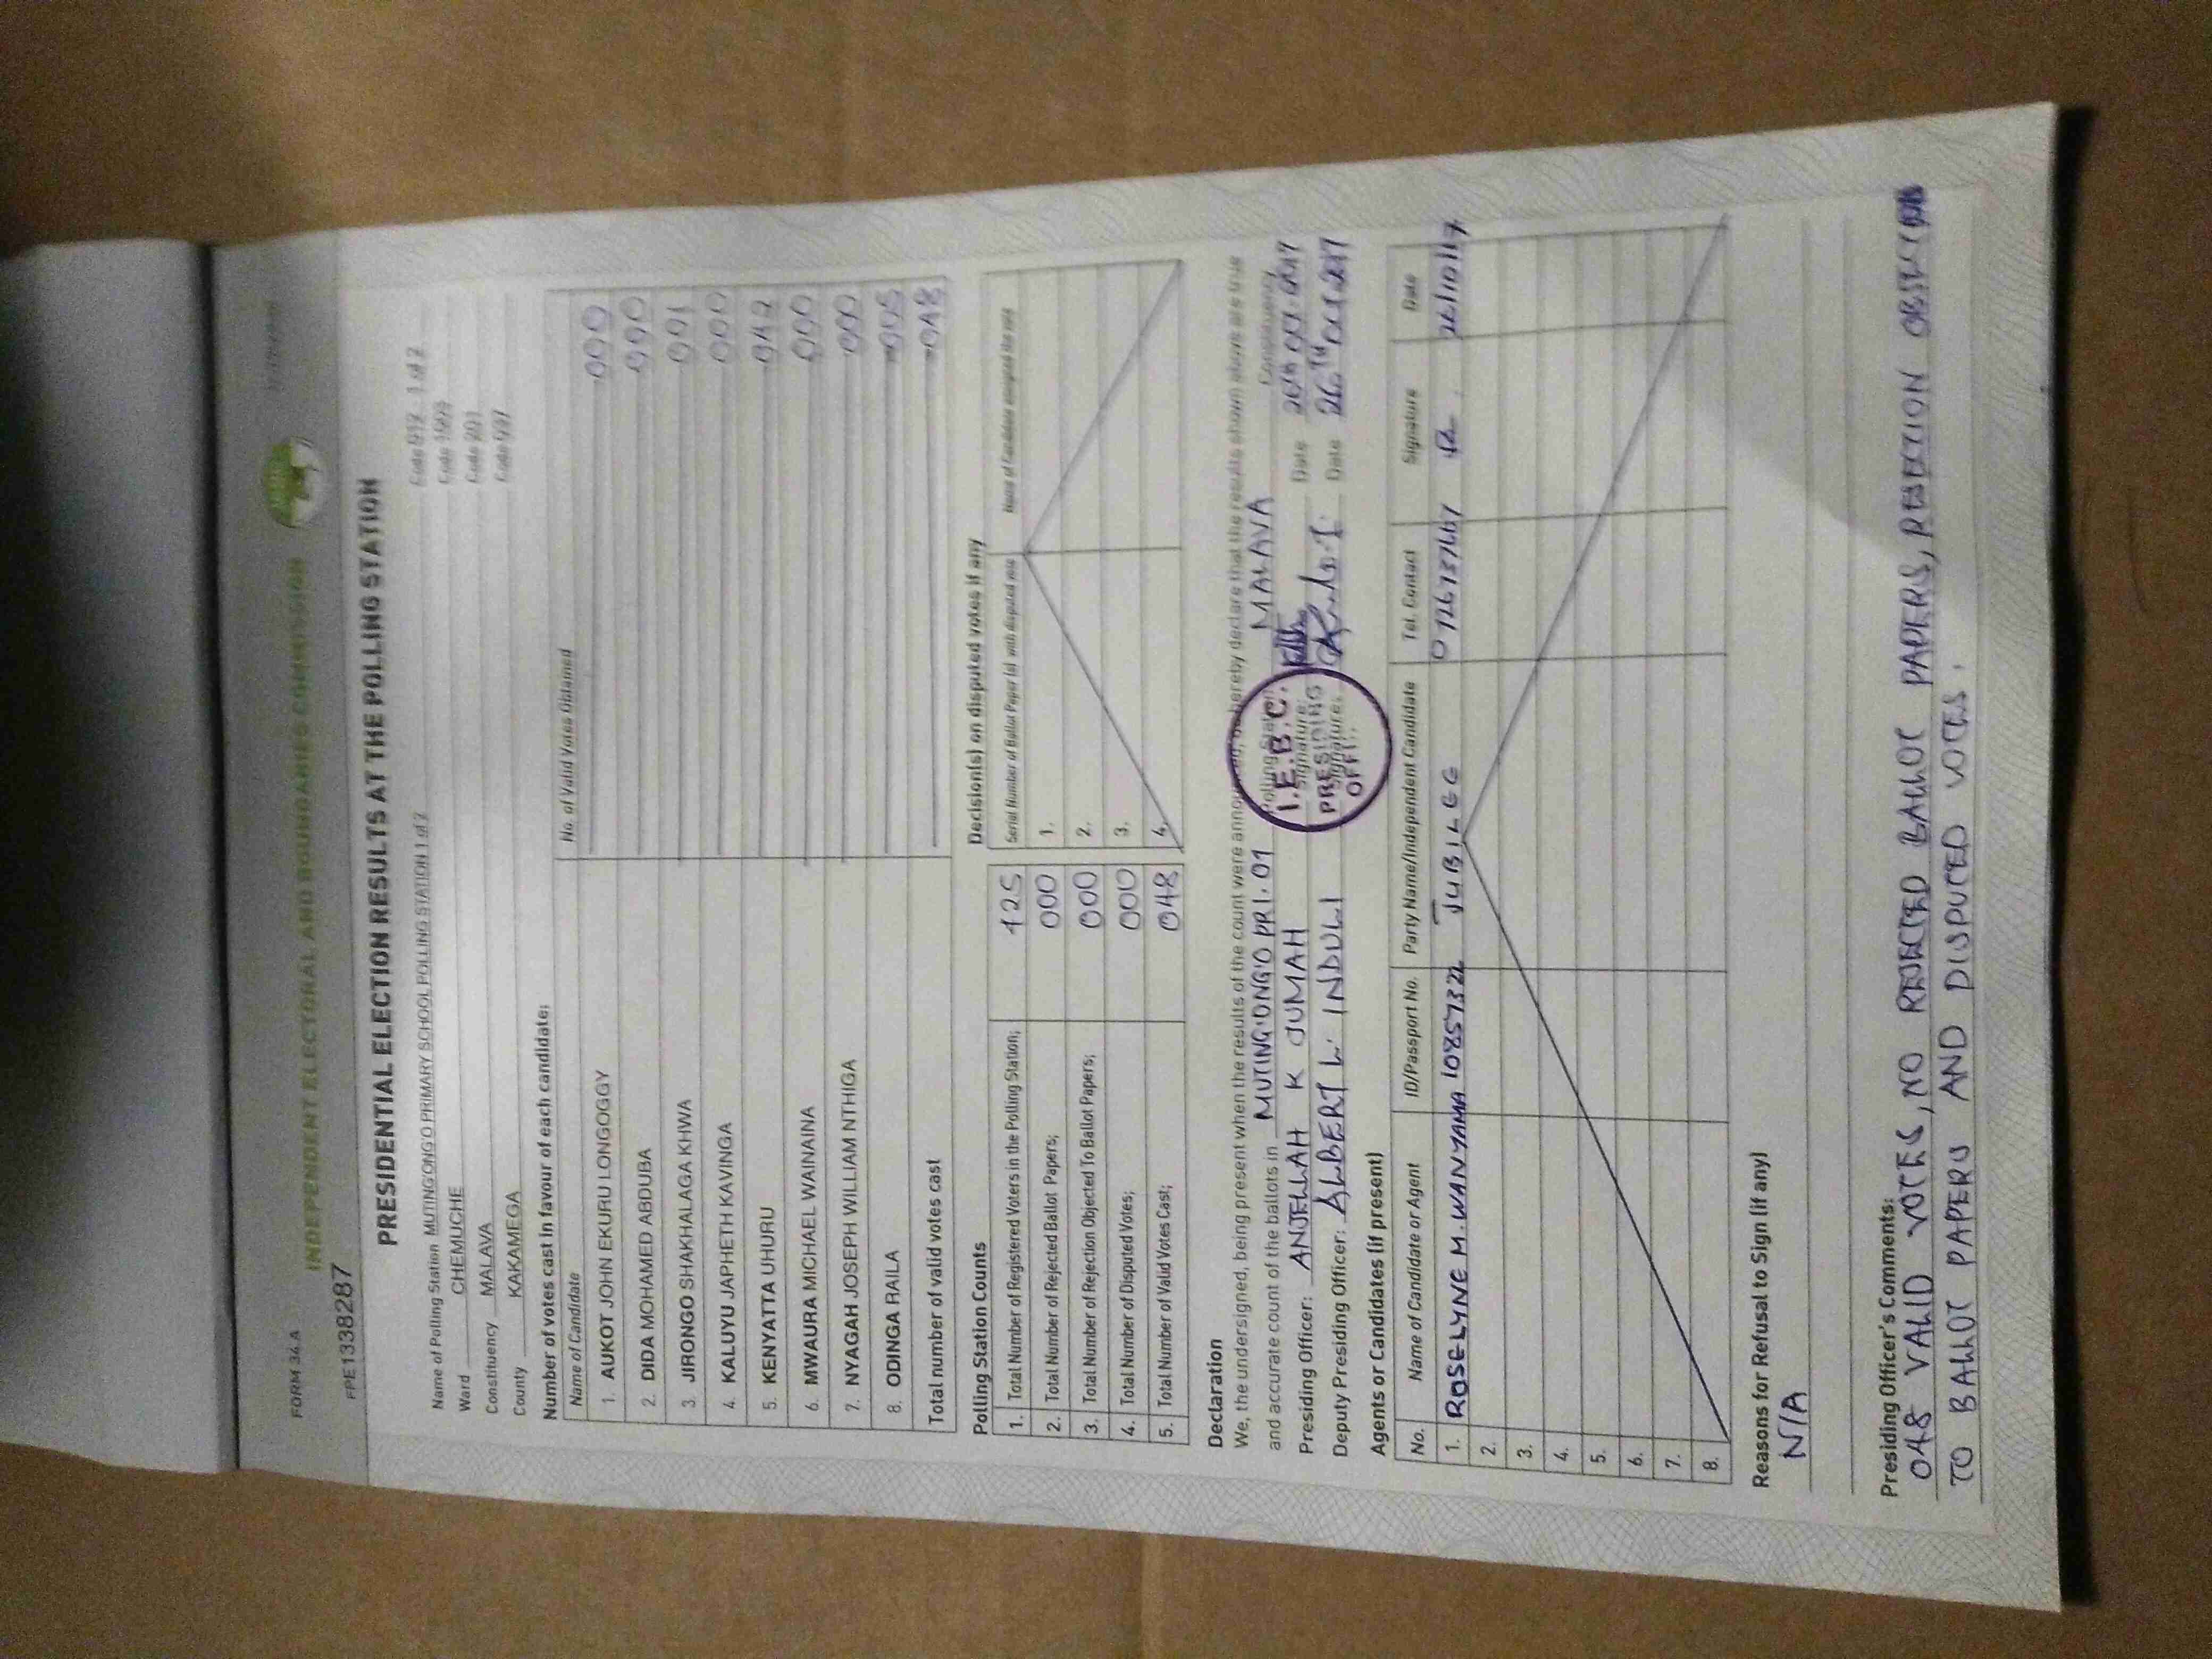 FORM 34 A
INDEPENDENT ELECTORAL AND BOUNDARIES COMMISSION
FPE1338287
PRESIDENTIAL ELECTION RESULTS AT THE POLLING STATION
Name of Polling Station MUTING'ONG'O PRIMARY SCHOOL POLLING STATION 1 of 2 Code 012 1 of 2
Ward CHEMUCHE Code 1005
Constituency MALAVA Code 201
County KAKAMEGA Code 037
Number of votes cast in favour of each candidate:
Name of Candidate No. of Valid Votes Obtained
1. AUKOT JOHN EKURU LONGOGGY 000
2. DIDA MOHAMED ABDUBA 000
3. JIRONGO SHAKHALAGA KHWA 001
4. KALUYU JAPHETH KAVINGA 000
5. KENYATTA UHURU 042
6. MWAURA MICHAEL WAINAINA 000
7. NYAGAH JOSEPH WILLIAM NTHIGA 000
8. ODINGA RAILA 005
Total number of valid votes cast 048
Polling Station Counts
1. Total Number of Registered Voters in the Polling Station; 425
2. Total Number of Rejected Ballot Papers; 000
3. Total Number of Rejection Objected To Ballot Papers; 000
4. Total Number of Disputed Votes; 000
5. Total Number of Valid Votes Cast; 048
Decision(s) on disputed votes if any
Serial Number of Ballot Paper (s) with disputed vote Name of Candidate assigned the vote
1.
2.
3.
4.
Declaration
We, the undersigned, being present when the results of the count were announced, do hereby declare that the results shown above are true
and accurate count of the ballots in MUTING'ONG'O PRI. 01 Polling Station MALAVA Constituency
Presiding Officer: ANJELLAH K JUMAH Signature: Date 26th OCT. 2017
Deputy Presiding Officer: ALBERT L. INDULI Signature: Date 26TH OCT 2017
I.E.B.C.
PRESIDING
OFFI
Agents or Candidates (if present)
No. Name of Candidate or Agent ID/Passport No. Party Name/Independent Candidate Tel. Contact Signature Date
1. ROSELYNE M. WANYAMA 10857322 JUBILEE 0726737667 26/10/17
2.
3.
4.
5.
6.
7.
8.
Reasons for Refusal to Sign (if any)
N/A
Presiding Officer's Comments:
048 VALID VOTES, NO REJECTED BALLOT PAPERS, REJECTION
TO BALLOT PAPERS AND DISPUTED VOTES.